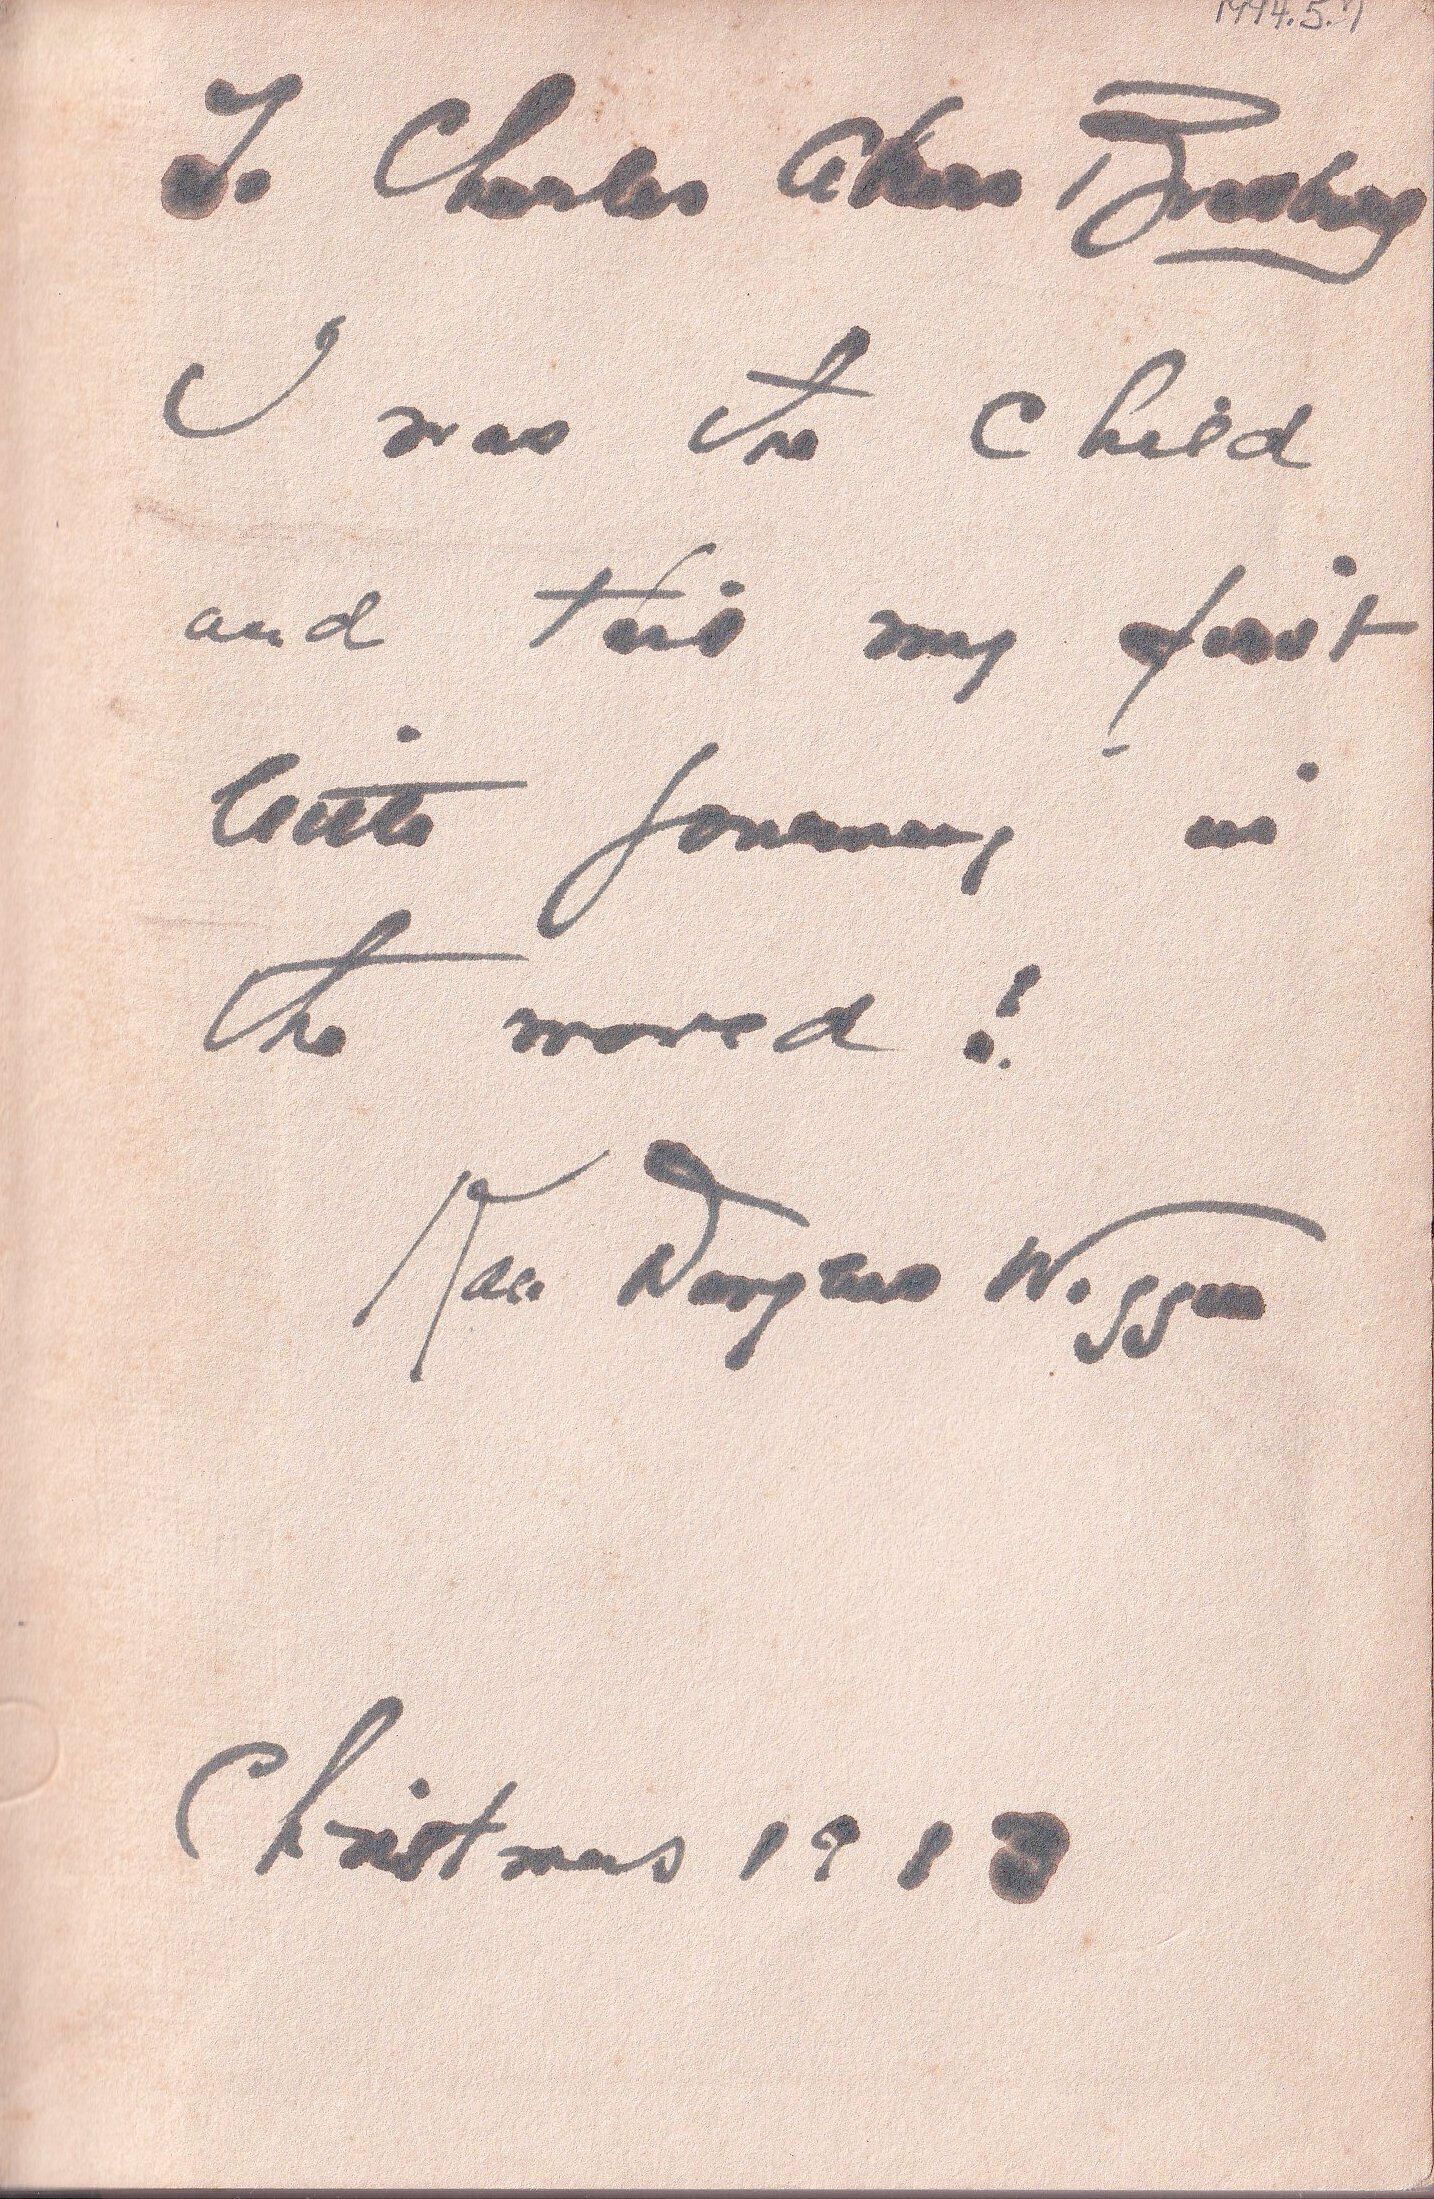 1994.5.7
To Charles Akers Bradbury
I was the Child
and this my first
little journey in
the world!
Kate Douglas Wiggin
Christmas 1913